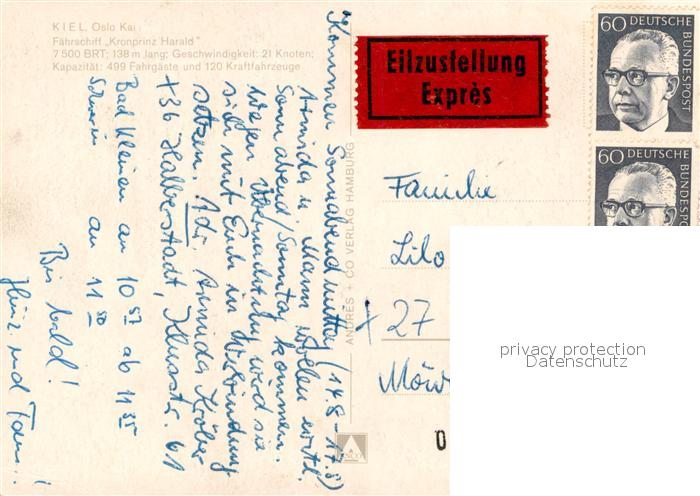 KIEL, Oslo Kai
Fährschiff „Kronprinz Harald"
7 500 BRT; 138 m lang; Geschwindigkeit: 21 Knoten;
Kapazität: 499 Fahrgäste und 120 Kraftfahrzeuge
Eilzustellung
Exprès
60 DEUTSCHE BUNDESPOST
60 DEUTSCHE BUNDESPOST
Kommen Sonnabend mittag (14.8-17.8)
Armida u. Mann wollen evtl.
Sonnabend/Sonntag kommen.
Wegen Übernachtung wird sie
sich mit Euch in Verbindung
setzen. Adr. Armida Kröber
X36 Halberstadt, Klusstr. 61
Bad Kleinen an 10 57 ab 11 35
Schwerin an 11 50
Bis bald!
Heinz und
ANDRES + CO VERLAG HAMBURG
Familie
Lilo
X 27
Möw
privacy protection
Datenschutz